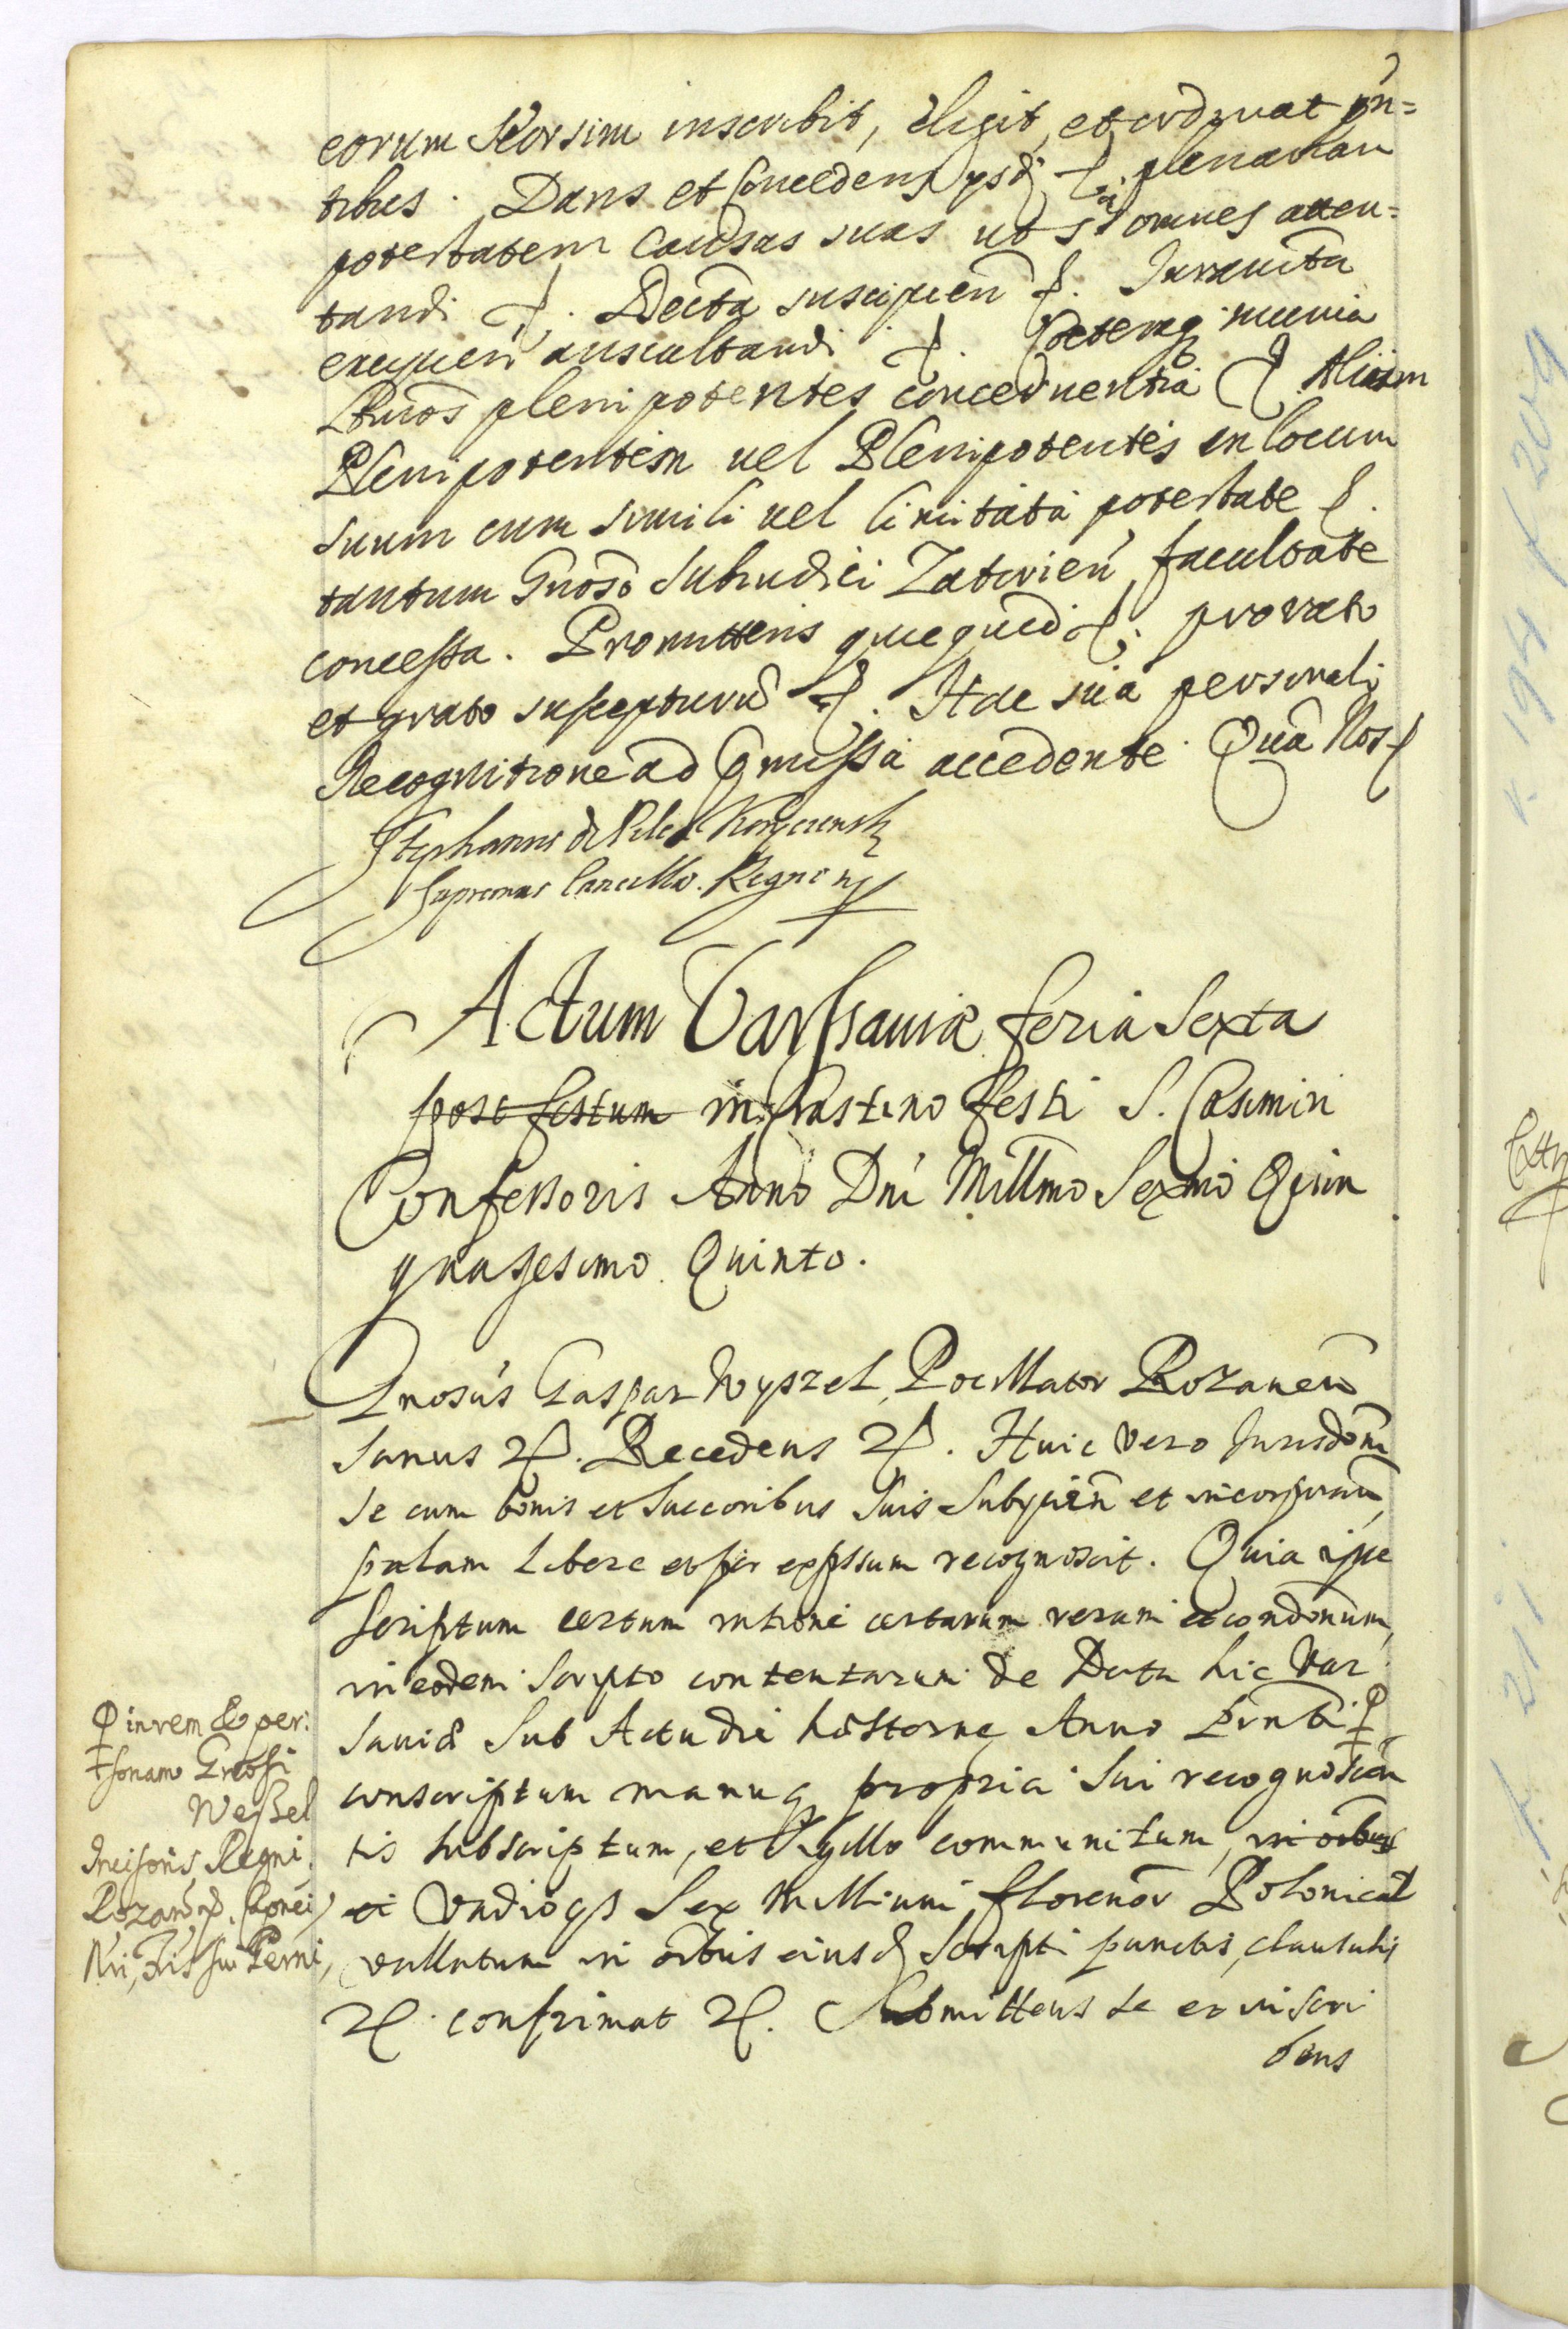 eorum seorsim inscribit, eligit, et ordinat pn̄=
tibus. Dans et Concedens ysd. plenariam
potestatem causas suas ut s. omnes atten=
tandi. Decta suscipien. Juramta
exequen auscultandi. Coeteraq munia
plenipotentes concernentia. Aliúm
Plenipotentem uel Plenipotentes in locum
suum cum simili uel limitata potestate.
tantum Gnoso Subiudici Zatorien facultate
concessa. Promittens quicquid. pro rato
et grato suscepturu. Hac sua personali
Recognitione ad pmissa accedente. Qua Nos
Stephanus de Pilca Koryczensk
Supremus Cancella. Regni
Actum Varssauiæ feria Sexta
post festum in Crastino festi S. Casimiri
Confessoris Anno Dni Millmo Sexmo Quin
quagesimo Quinto.
Gnosus Gaspar Wyszel, Pocillator Rozanen
sanus. Recedens. Huic vero Jurisdom
se cum bonis et succoribus suis subyicien et incorporan
palam libere et per expssum recognoscit. Quia ipse
scriptum certum ratione certarum rerum et condonum,
in eodem scripto contentarum de Data hic Var
sauiæ sub Actu die hesterne Anno prnti
conscriptum manuq propria sui recognoscen
tis subscriptum, et sigillo communitum, in oibus
ei Vadioqs Sex Millium florenor Polonical
vallatum in oibus eiusd Scripti punctis, clausulis
confirmat. Submittens se et inscri
bens
in rem & per:
sonam Grosi
Weßel
Incisoris Regni
Rozan. Capnei
Nri, Fris sui Germi,